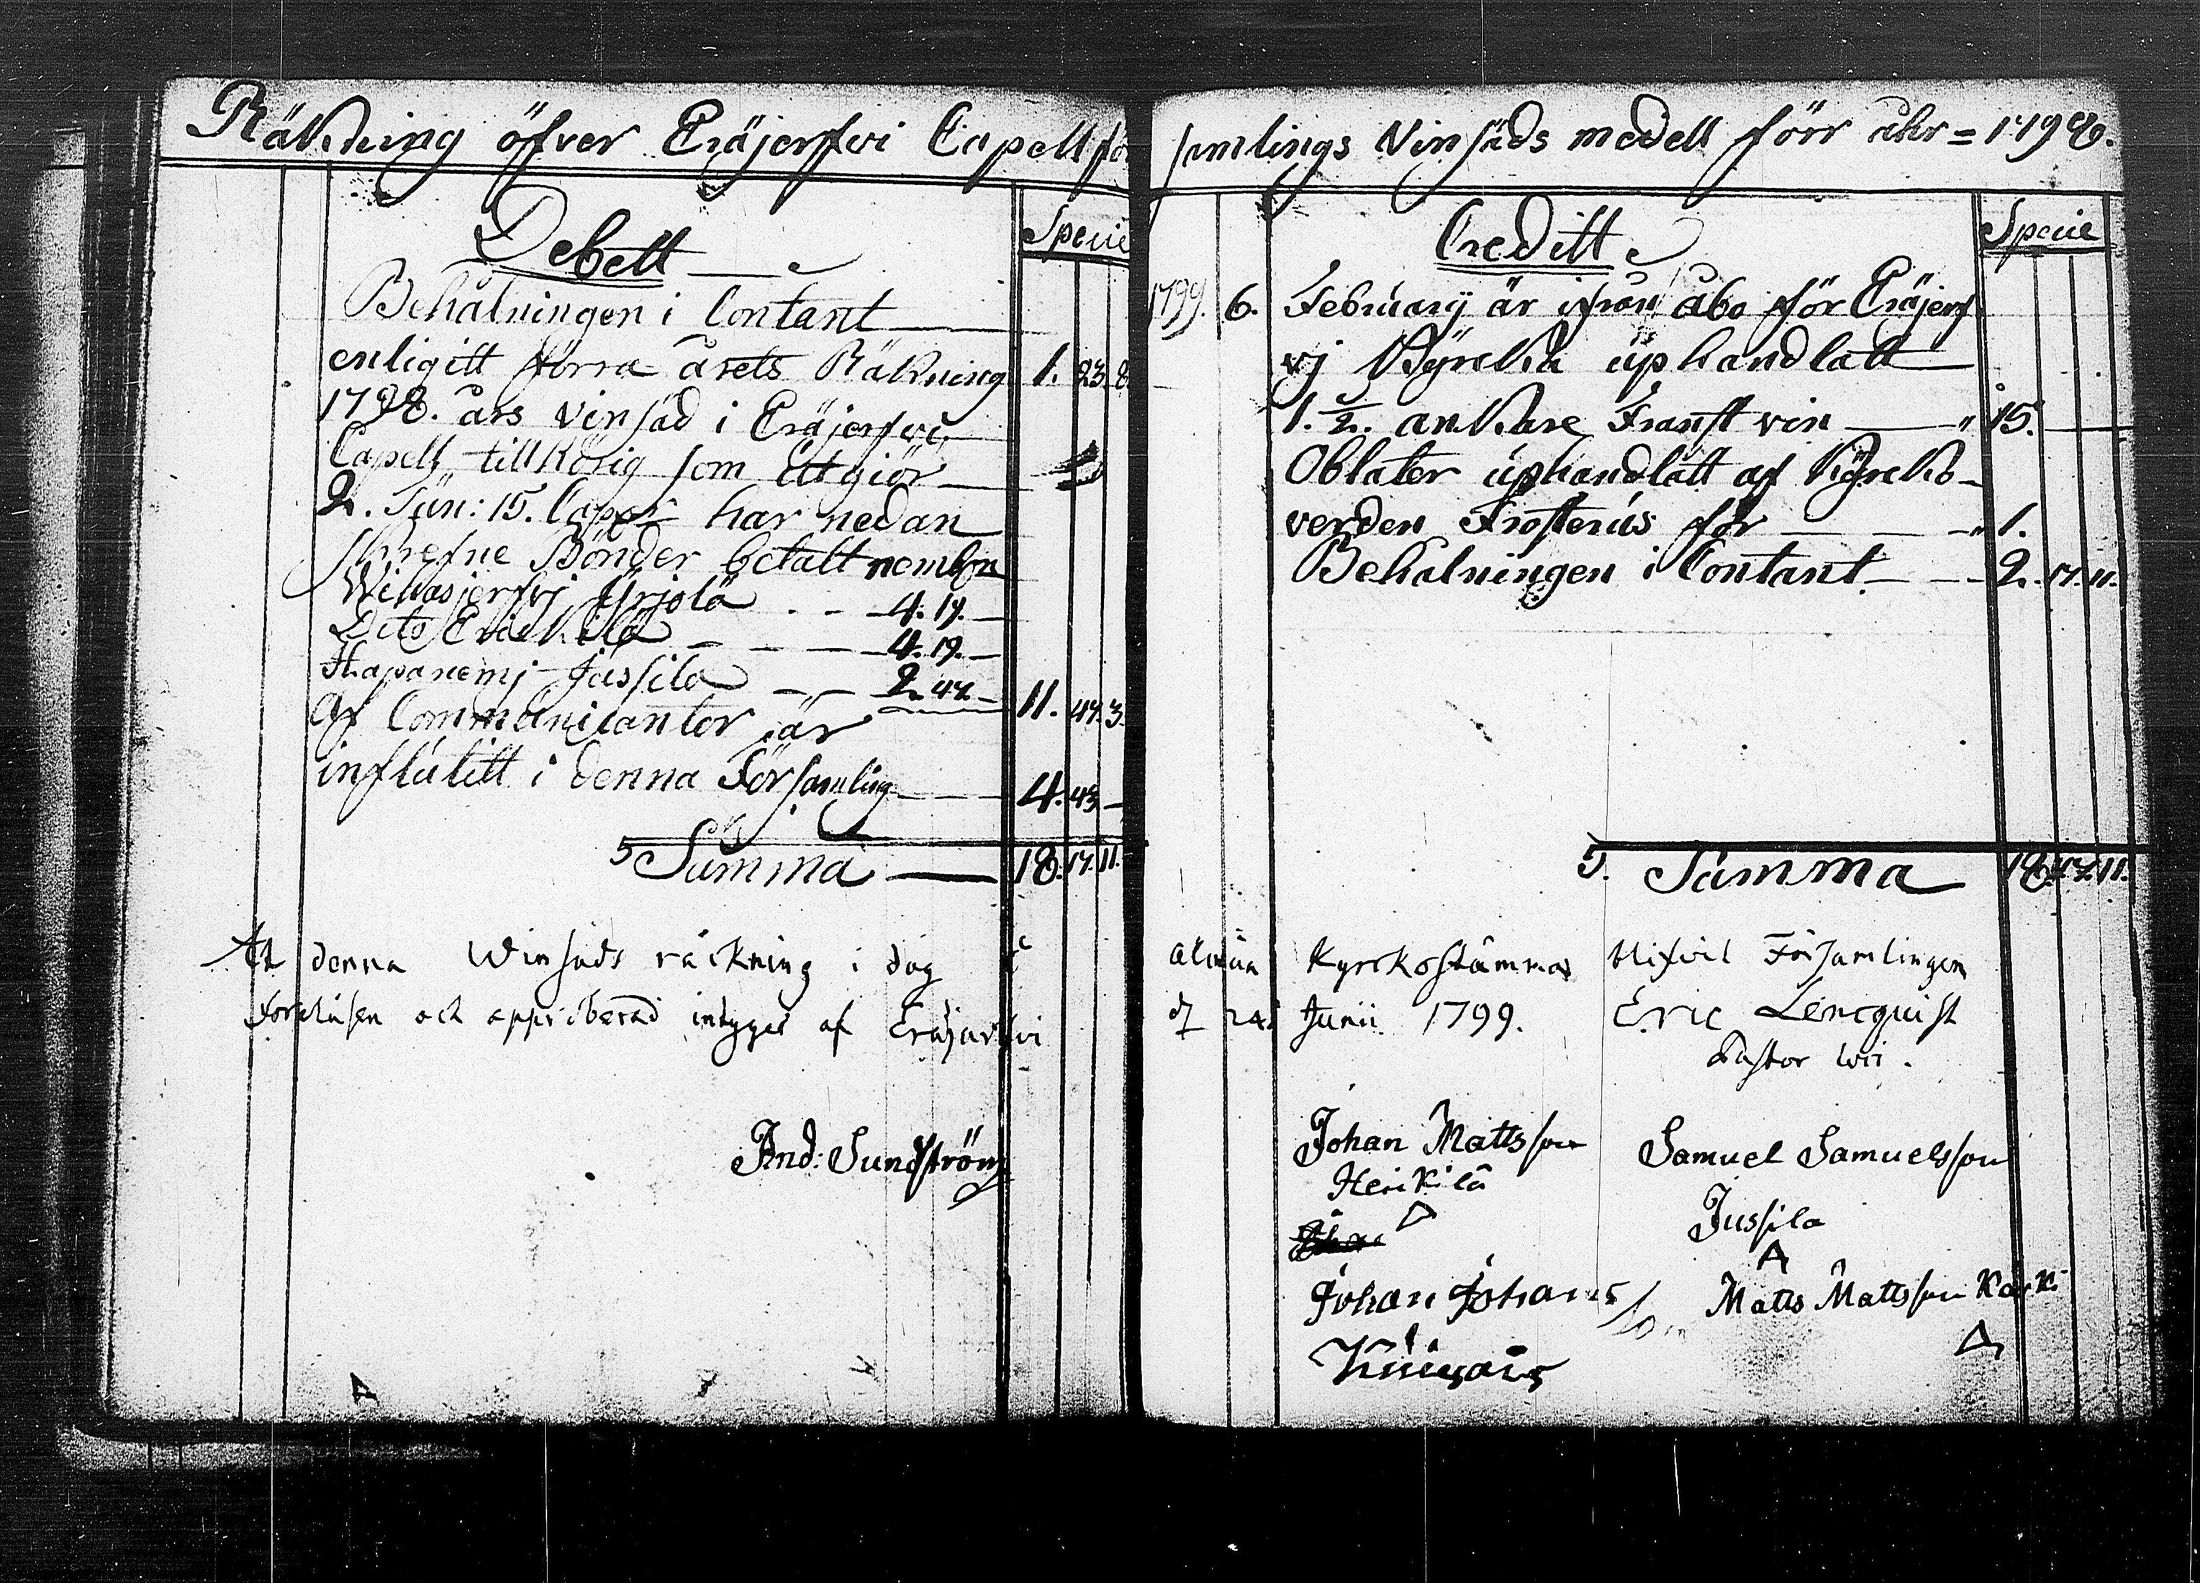 Räkning öfver Eräjerfwi Capell för samlings Vinsäds medell förr åhr = 1798.
Debett
Specie
Behålningen i Contant
enligitt förra årets Räkning 1. 23. 8
1798. års vinsäd i Eräjerfwi
Capell tillhörig som utgiör
2. Tün: 15. Capp: har nedan
skrefne Bönder betalt nemlin
Wihasjerfvj Yrjolä - - 4. 19. -
Dito Erickilä - - - 4. 19. -
Hapanemj Jussila - - 2. 47. -
11. 47. 3.
af Communicanter är
influtitt i denna Församling - 4. 43 -
Summa 18. 17. 11.
Creditt
Specie
1799. 6. February är ifrån åbo för Eräjerf
vj Kÿrcka üphandlatt
1. ½. ankare Franst vin " 15.
Oblater üphandlatt af Kÿrcko-
verden Frosterüs för - - - " 1.
Behalningen i Contant - - 2. 17. 11.
5. Summa 18. 17. 11.
At denna Winsäds räckning i dag
Kyrckostämma blifvit Församlingen
och approberad intygas af Eräjärfvi
Junii 1799.
Eric Lencquist
Pastor
And: Sundström
Johan Mattsson
Heikilä
Samuel Samuelsson
Jussila
Johan Johansson
Matts Mattsson Karki